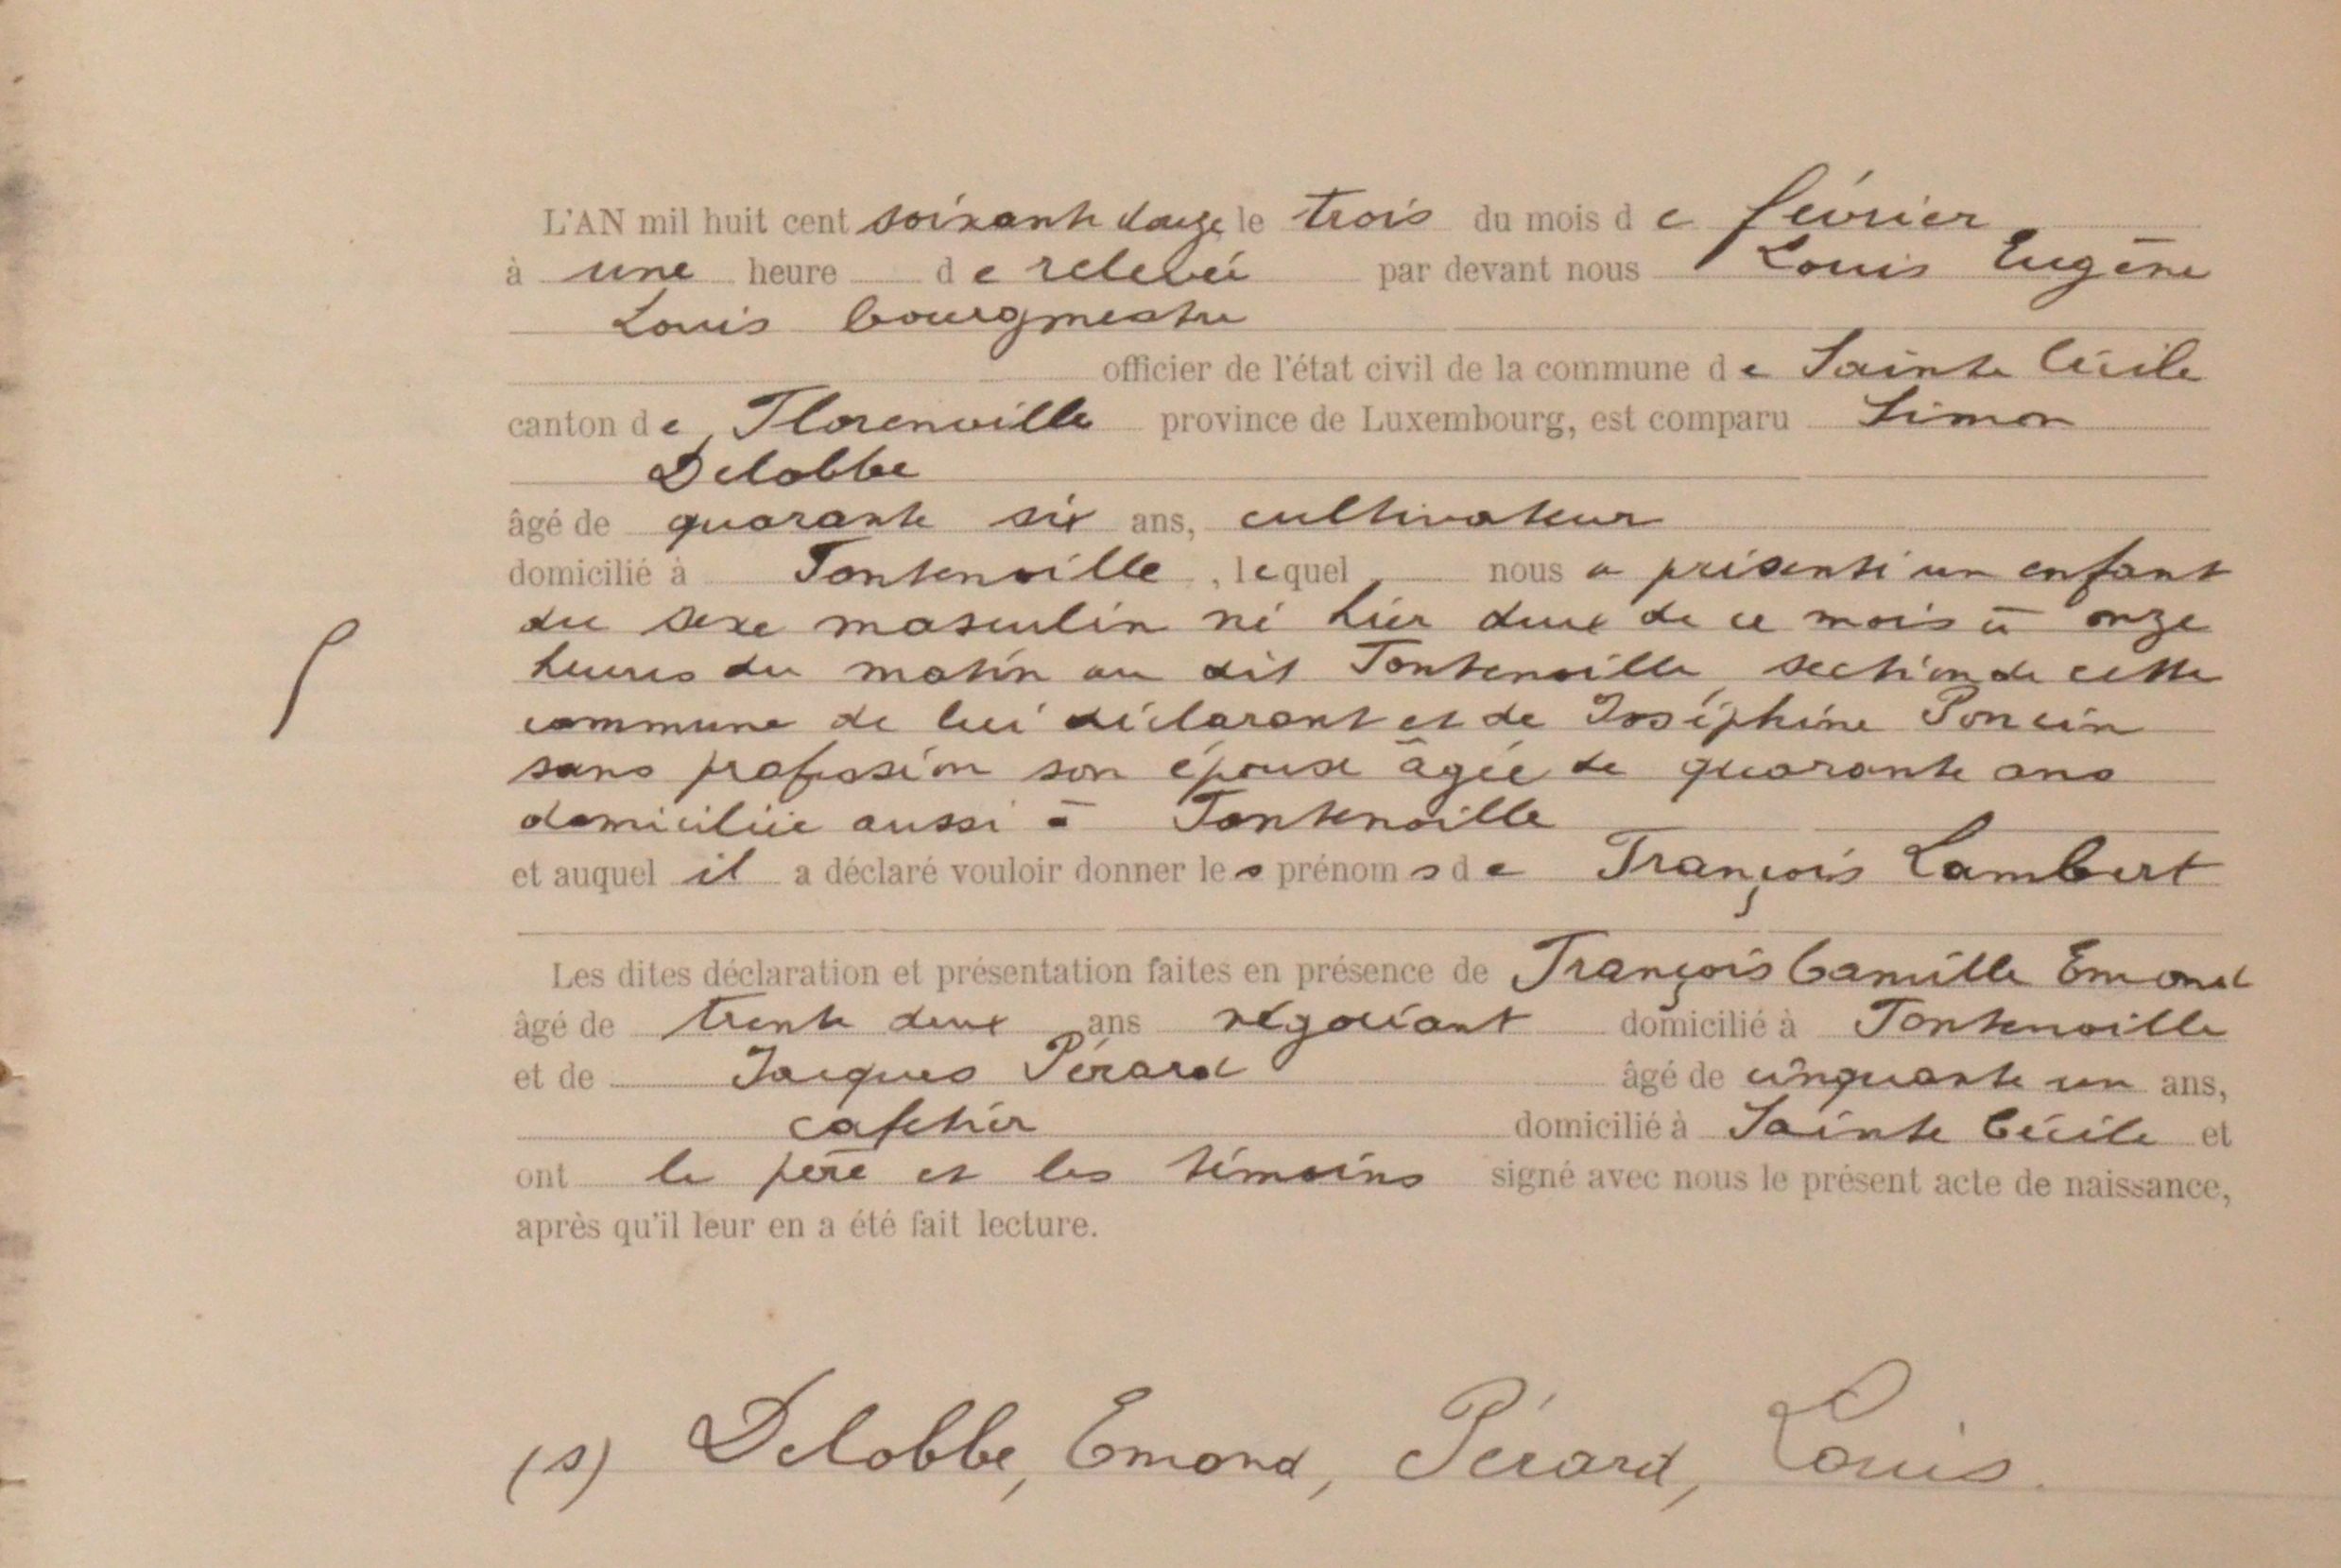 L'AN mil huit cent soixante douze le trois du mois de février
à une heure de relevée par devant nous Louis Eugène
Louis bourgmestre
officier de l'état civil de la commune de Sainte Cécile
canton de Florenville province de Luxembourg, est comparu Simon
Delobbe
âgé de quarante six ans, cultivateur
domicilié à Fontenoille, lequel nous a présenté un enfant
du sexe masculin né hier deux de ce mois à onze
heures du matin au dit Fontenoille section de cette
commune de lui déclarant et de Joséphine Poncin
sans profession son épouse âgée de quarante ans
domiciliée aussi à Fontenoille
et auquel il a déclaré vouloir donner les prénoms de François Lambert
Les dites déclaration et présentation faites en présence de François Camille Emond
âgé de trente deux ans négociant domicilié à Fontenoille
et de Jacques Pérard âgé de cinquante un ans,
cafetier domicilié à Sainte Cécile et
ont le père et les témoins signé avec nous le présent acte de naissance,
après qu'il leur en a été fait lecture.
(s) Delobbe, Emond, Pérard, Louis.